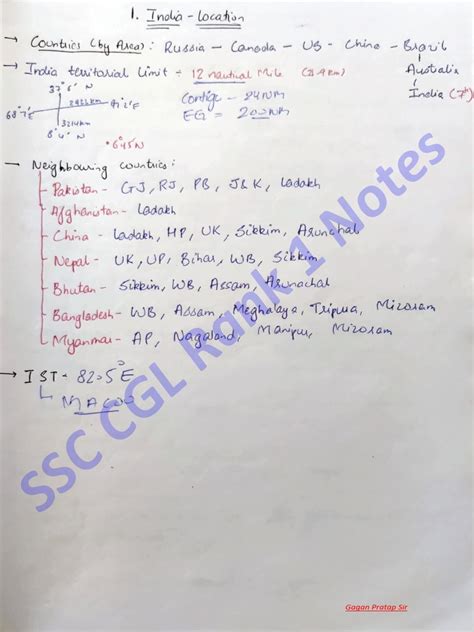 1. India - Location
→ Countries (by Area): Russia - Canada - US - China - Brazil
Australia
India (7th)
→ India territorial limit - 12 nautical Mile
37°6' N
68°7' E 97°2' E
3214 km
8°4' N
• 6°45 N
Contig - 24 NM
EG = 200 NM
→ Neighbouring countries:
Pakistan - GJ, RJ, PB, J&K, Ladakh
Afghanistan - Ladakh
China - Ladakh, HP, UK, Sikkim, Arunachal
Nepal - UK, UP, Bihar, WB, Sikkim
Bhutan - Sikkim, WB, Assam, Arunachal
Bangladesh - WB, Assam, Meghalaya, Tripura, Mizoram
Myanmar - AP, Nagaland, Manipur, Mizoram
→ IST - 82.5° E
SSC CGL Rank 1 Notes
Gagan Pratap Sir